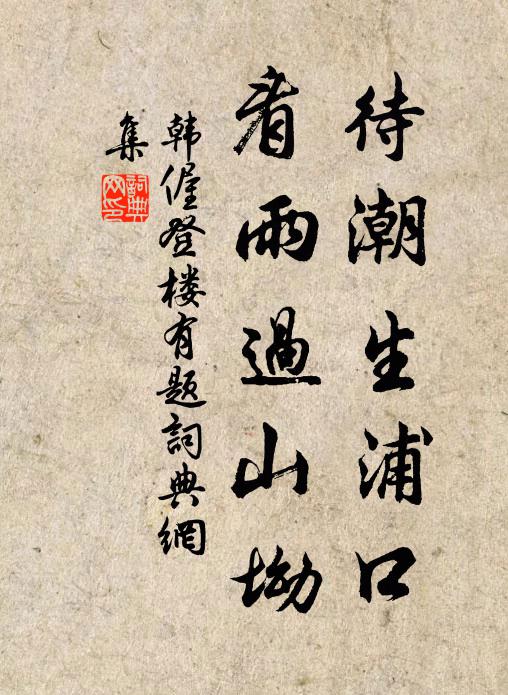 待潮生浦口
看雨過山坳
韩偓登楼有题詞典網
集
詞典网印